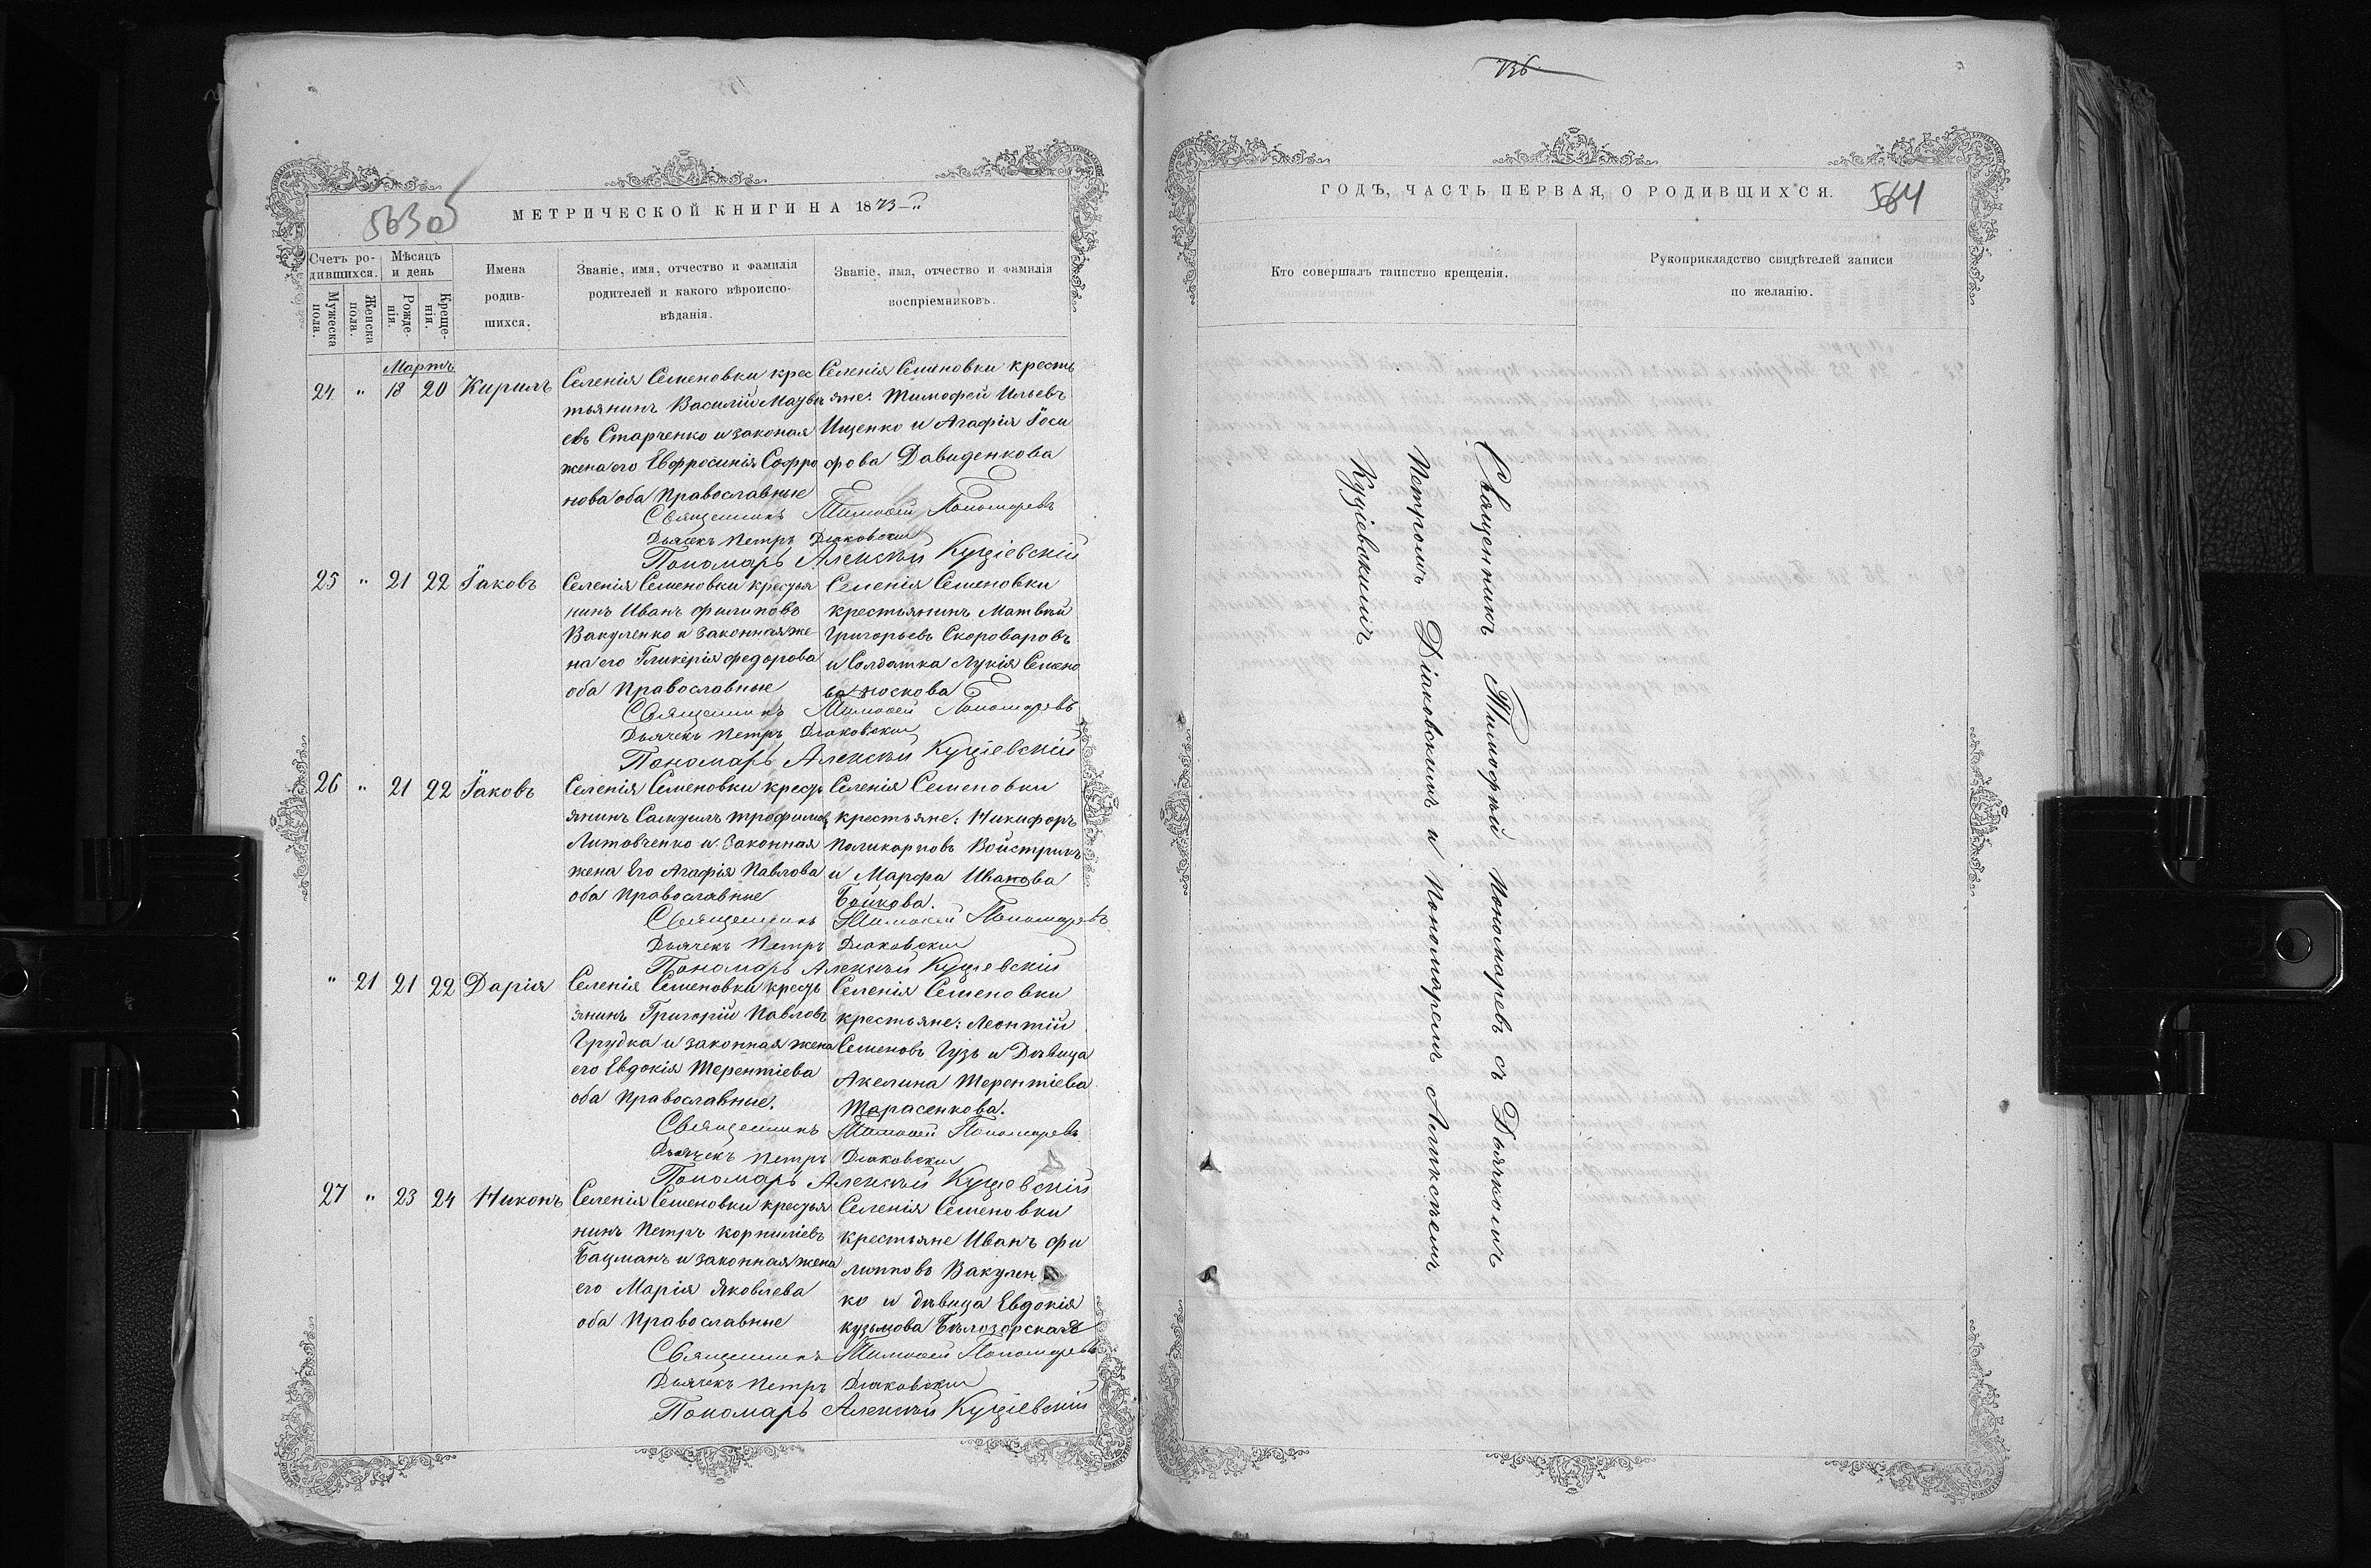 563 об
МЕТРИЧЕСКОЙ КНИГИ НА 1873-й
Счетъ ро-
дившихся.
Мѣсяцъ
и день
Мужеска
пола.
Женска
пола.
Рожде-
нія.
Креще-
нія.
Имена
родив-
шихся.
Званіе, имя, отчество и фамилія
родителей и какого вѣроиспо-
вѣданія.
Званіе, имя, отчество и фамилія
воспріемниковъ.
Мартъ
24 " 18 20 Кирилъ
Селенія Семеновки крес
тьянинъ Василій
евъ Старченко и законая
жена его Евфросинія Софро
нова оба Православные
Селенія Семеновки кресть
яне: Тимофей Ильевъ
Ищенко и Агафія Іоси
фова Давиденкова
Священникъ Тимофей Пономаревъ
Дьячекъ Петръ Дяковскій
Пономарь Алексѣй Кущіевскій
25 " 21 22 Іаковъ
Селенія Семеновки крестья
нинъ Иванъ филиповъ
Вакуленко и законная же-
на его Гликерія федорова
оба Православные
Селенія Семеновки
крестьянинъ Матвѣй
Григорьевъ Скороваровъ
и Солдатка Лукія Семено
ва Носкова
Священникъ Тимофей Пономаревъ
Дьячекъ Петръ Дяковскій
Пономарь Алексѣй Кущіевскій
26 " 21 22 Іаковъ
Селенія Семеновки кресть
янинъ Самуилъ трофимовъ
Литовченко и Законная
жена Его Агафія Павлова
оба Православные
Селенія Семеновки
крестьяне: Никифоръ
Поликарповъ Войстрикъ
и Марфа Иванова
Бойкова.
Священникъ Тимофей Пономаревъ
Дьячекъ Петръ Дяковскій
Пономарь Алексѣй Кущіевскій
" 21 21 22 Дарія
Селенія Семеновки кресть
янинъ Григорій Павловъ
Грудка и законная жена
его Евдокія Терентіева
оба Православные.
Селенія Семеновки
крестьяне: Леонтій
Семеновъ Гузь и Дѣвица
Акелина Терентіева
Тарасенкова.
Священникъ Тимофей Пономаревъ
Дьячекъ Петръ Дяковскій
Пономарь Алексѣй Кущіевскій
27 " 23 24 Никонъ
Селенія Семеновки крестья
нинъ Петръ корниліевъ
Бацманъ и законная жена
его Марія Яковлева
оба Православные
Селенія Семеновки
крестьяне Иванъ фи
липповъ Вакулен
ко и дѣвица Евдокія
кузьмова Бѣлозорская
Священникъ Тимофей Пономаревъ
Дьячекъ Петръ Дяковскій
Пономарь Алексѣй Кущіевскій
736
ГОДЪ, ЧАСТЬ ПЕРВАЯ, О РОДИВШИХСЯ.
564
Кто совершалъ таинство крещенія.
Рукоприкладство свидѣтелей записи
по желанію.
Священникъ Тимофѣй Пономаревъ съ Дьячкомъ
Петромъ Діаковскимъ и Пономаремъ Алексѣемъ
Кущіевскимъ